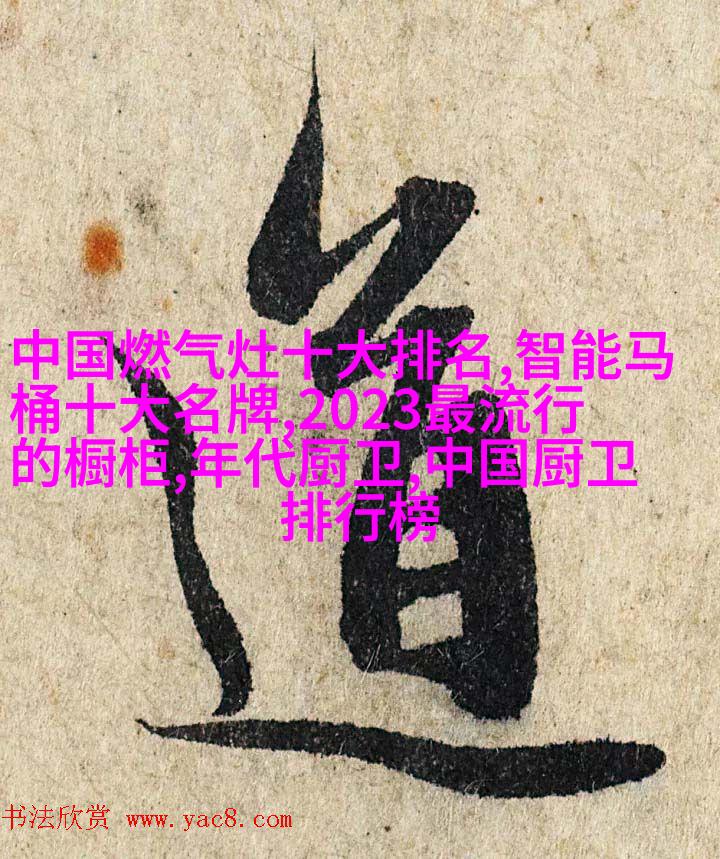 道
中国燃气灶十大排名,智能马
桶十大名牌,2023最流行
的橱柜,年代厨卫,中国厨卫
排行榜
书法欣赏 www.yac8.com